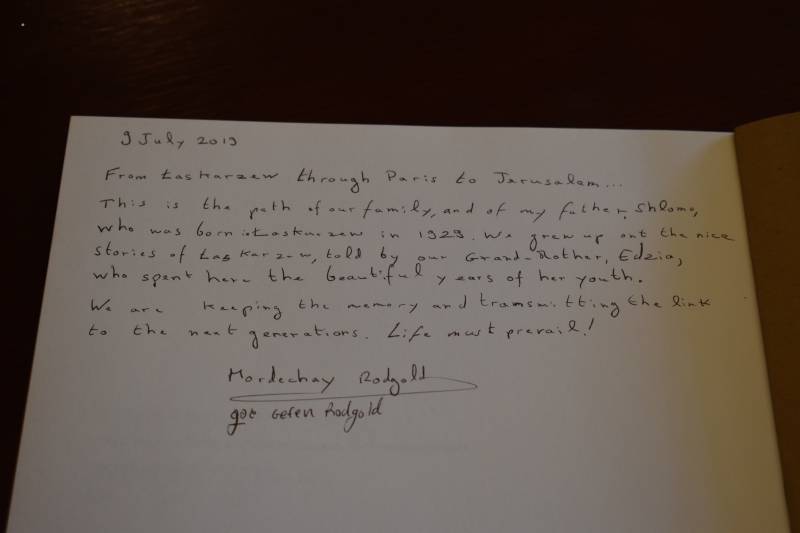 9 July 2019
From Łaskarzew through Paris to Jerusalem...
This is the path of our family, and of my father, Shlomo,
who was born in Łaskarzew in 1929. We grew up ont the nice
stories of Łaskarzew, told by our Grand-Mother, Edzia,
who spent here the beautiful years of her youth.
We are keeping the memory and transmitting the link
to the next generations. Life must prevail!
Mordechay Rodgold
Gefen Rodgold